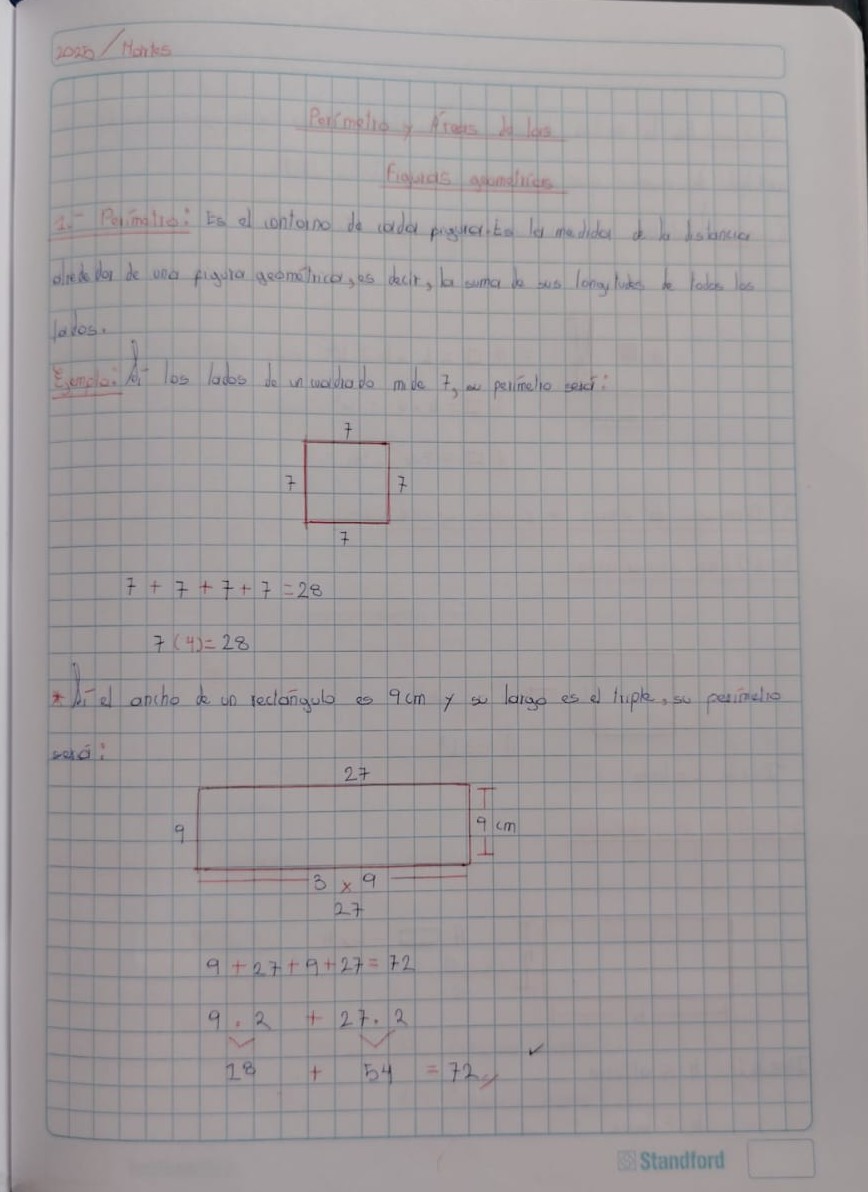 2025 / Martes
Perímetro y Áreas de las
Figuras geométricas
1.- Perímetro: Es el contorno de cada figura. Es la medida de la distancia
alrededor de una figura geométrica, es decir, la suma de sus longitudes de todos los
lados.
Ejemplo: Si los lados de un cuadrado mide 7, su perímetro será:
7
7 7
7
7 + 7 + 7 + 7 = 28
7 (4) = 28
* Si el ancho de un rectángulo es 9cm y su largo es el triple, su perímetro
será:
27
9 9 cm
3 x 9
27
9 + 27 + 9 + 27 = 72
9 . 2 + 27 . 2
18 + 54 = 72
Standford